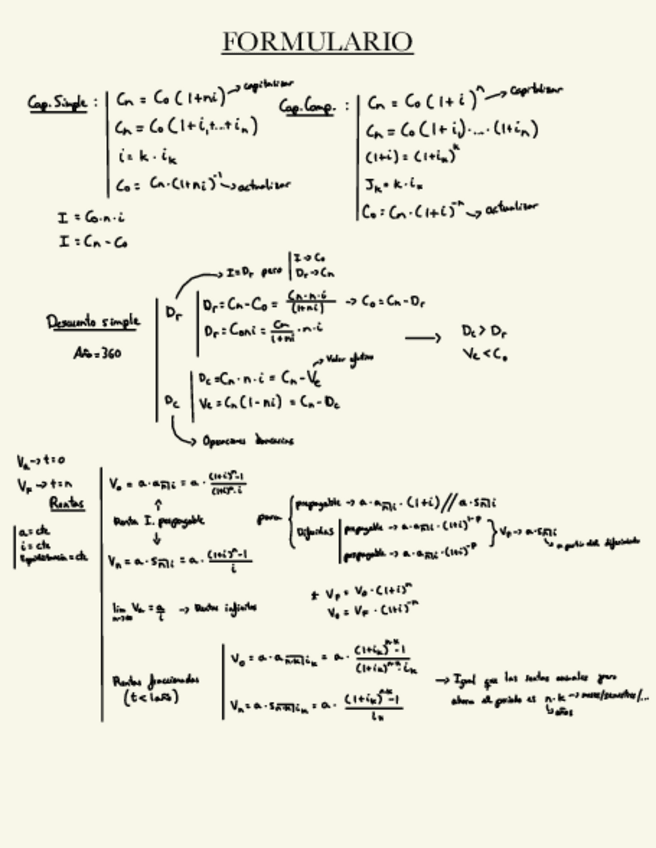 FORMULARIO
Cap. Simple: Cn = Co (1+ni) → capitalizar
Cn = Co (1+i₁+...+in)
i = k · ik
Co = Cn · (1+ni)⁻¹ → actualizar
I = Co·n·i
I = Cn - Co
Cap. Comp.: Cn = Co (1+i)ⁿ → capitalizar
Cn = Co (1+i₁) · ... · (1+in)
(1+i) = (1+ik)ᵏ
Jk = k · ik
Co = Cn · (1+i)⁻ⁿ → actualizar
Descuento simple
Año = 360
Dr
I = Dr pero | I → Co
Dr → Cn
Dr = Cn - Co = Cn·n·i / (1+ni) → Co = Cn - Dr
Dr = Coni = Cn / 1+ni · n·i
Dc
→ Valor efectivo
Dc = Cn · n · i = Cn - Ve
Ve = Cn (1-ni) = Cn - Dc
→ Operaciones bancarias
→ Dc > Dr
Ve < Co
Va → t=0
VF → t=n
Rentas
a = cte
i = cte
Equidistancia = cte
Vo = a · an̅|i = a · (1+i)ⁿ-1 / (1+i)ⁿ·i
↑
Renta I. pospagable
↓
Vn = a · sn̅|i = a · (1+i)ⁿ-1 / i
para
prepagable → a · an̅|i · (1+i) // a · sn̅|i
Diferidas
prepagable → a · an̅|i · (1+i)¹⁻ᵖ
pospagable → a · an̅|i · (1+i)⁻ᵖ
VF → a · sn̅|i
→ a partir del diferimiento
lim n→∞ Va = a/i → Rentas infinitas
* VF = Vo · (1+i)ⁿ
Vo = VF · (1+i)⁻ⁿ
Rentas fraccionadas
(t < 1 año)
Vo = a · an·k̅|ik = a · (1+ik)ⁿ·ᵏ-1 / (1+ik)ⁿ·ᵏ·ik
Vn = a · sn·k̅|ik = a · (1+ik)ⁿ·ᵏ-1 / ik
→ Igual que las rentas anuales pero
ahora el periodo es n·k → meses/semestres/...
↳ años